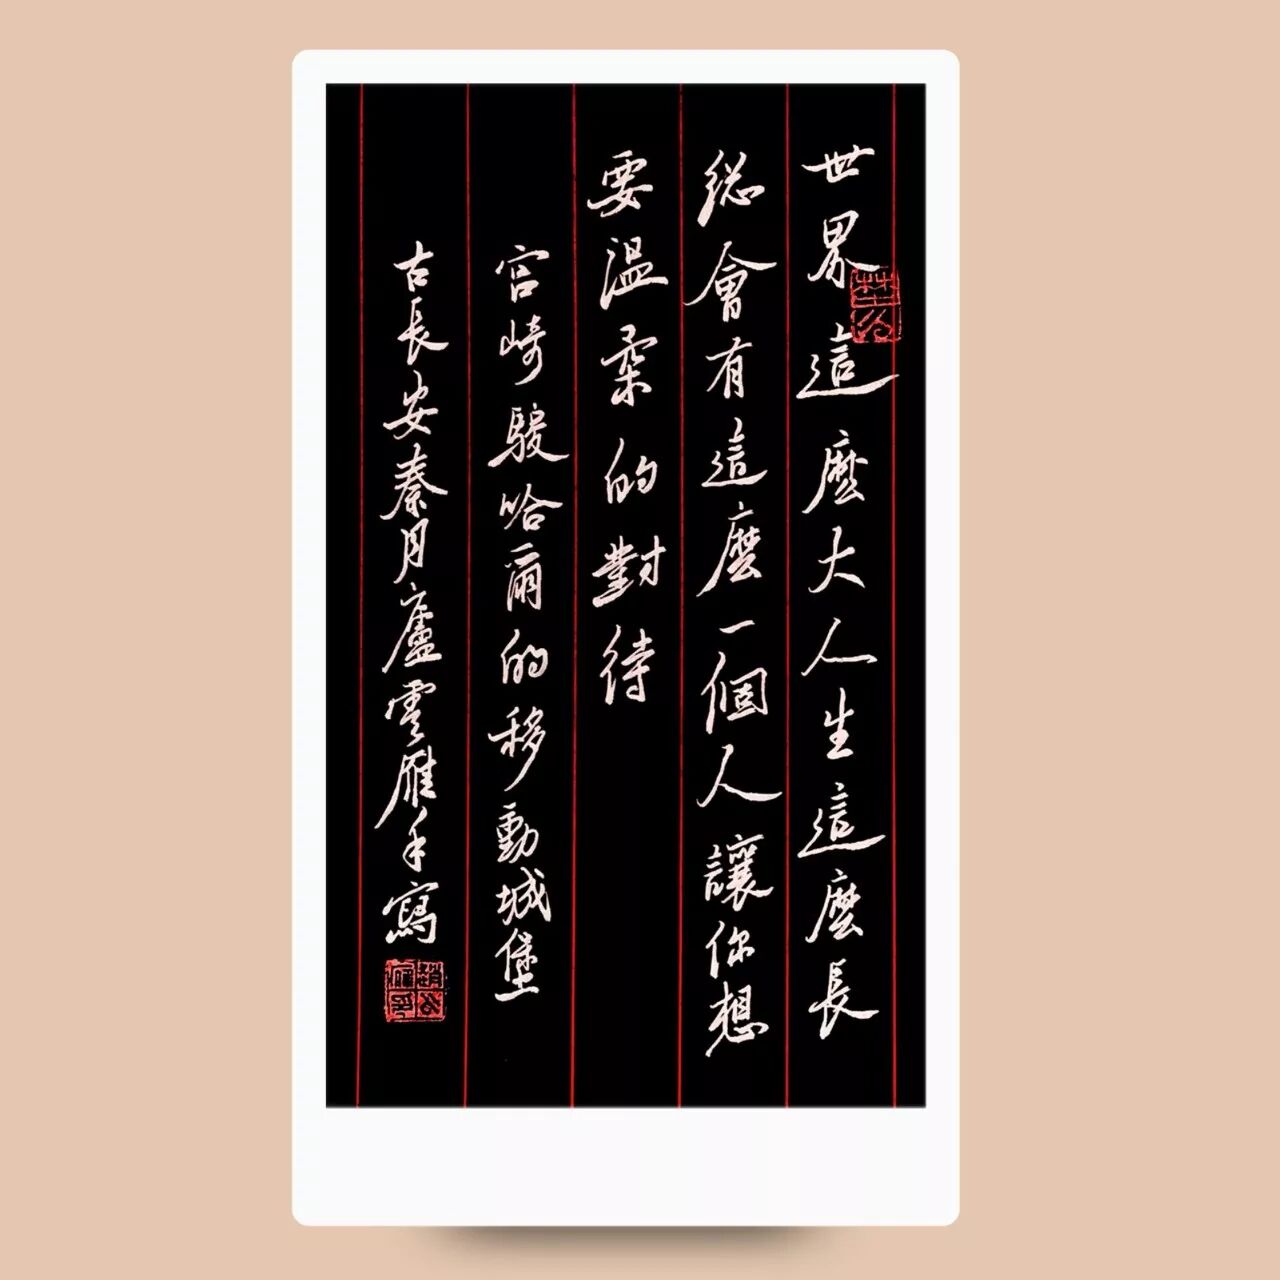 世界這麼大人生這麼長
總會有這麼一個人讓你想
要溫柔的對待
宮崎駿哈爾的移動城堡
古長安秦月廬雲雁手寫